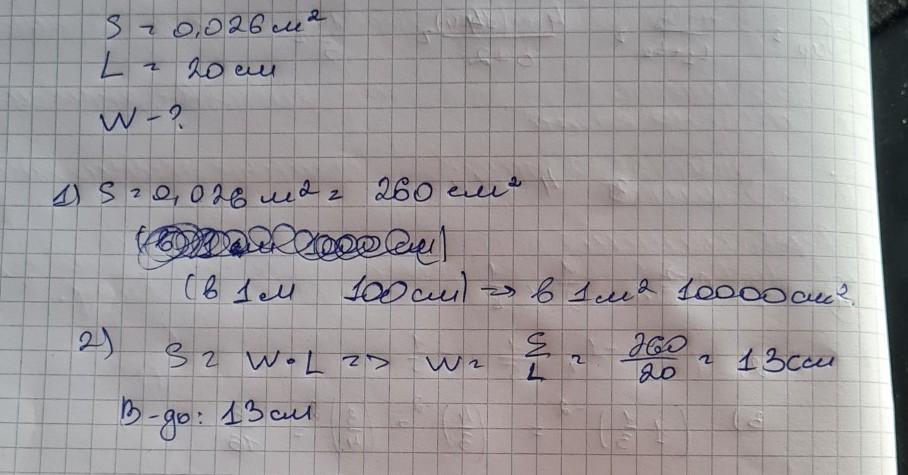 S = 0,026 м²
L = 20 см
W - ?
1) S = 0,026 м² = 260 см²
(в 1 м 100 см) => в 1 м² 10000 см².
2) S = W·L => W = S/L = 260/20 = 13 см
В-дь: 13 см